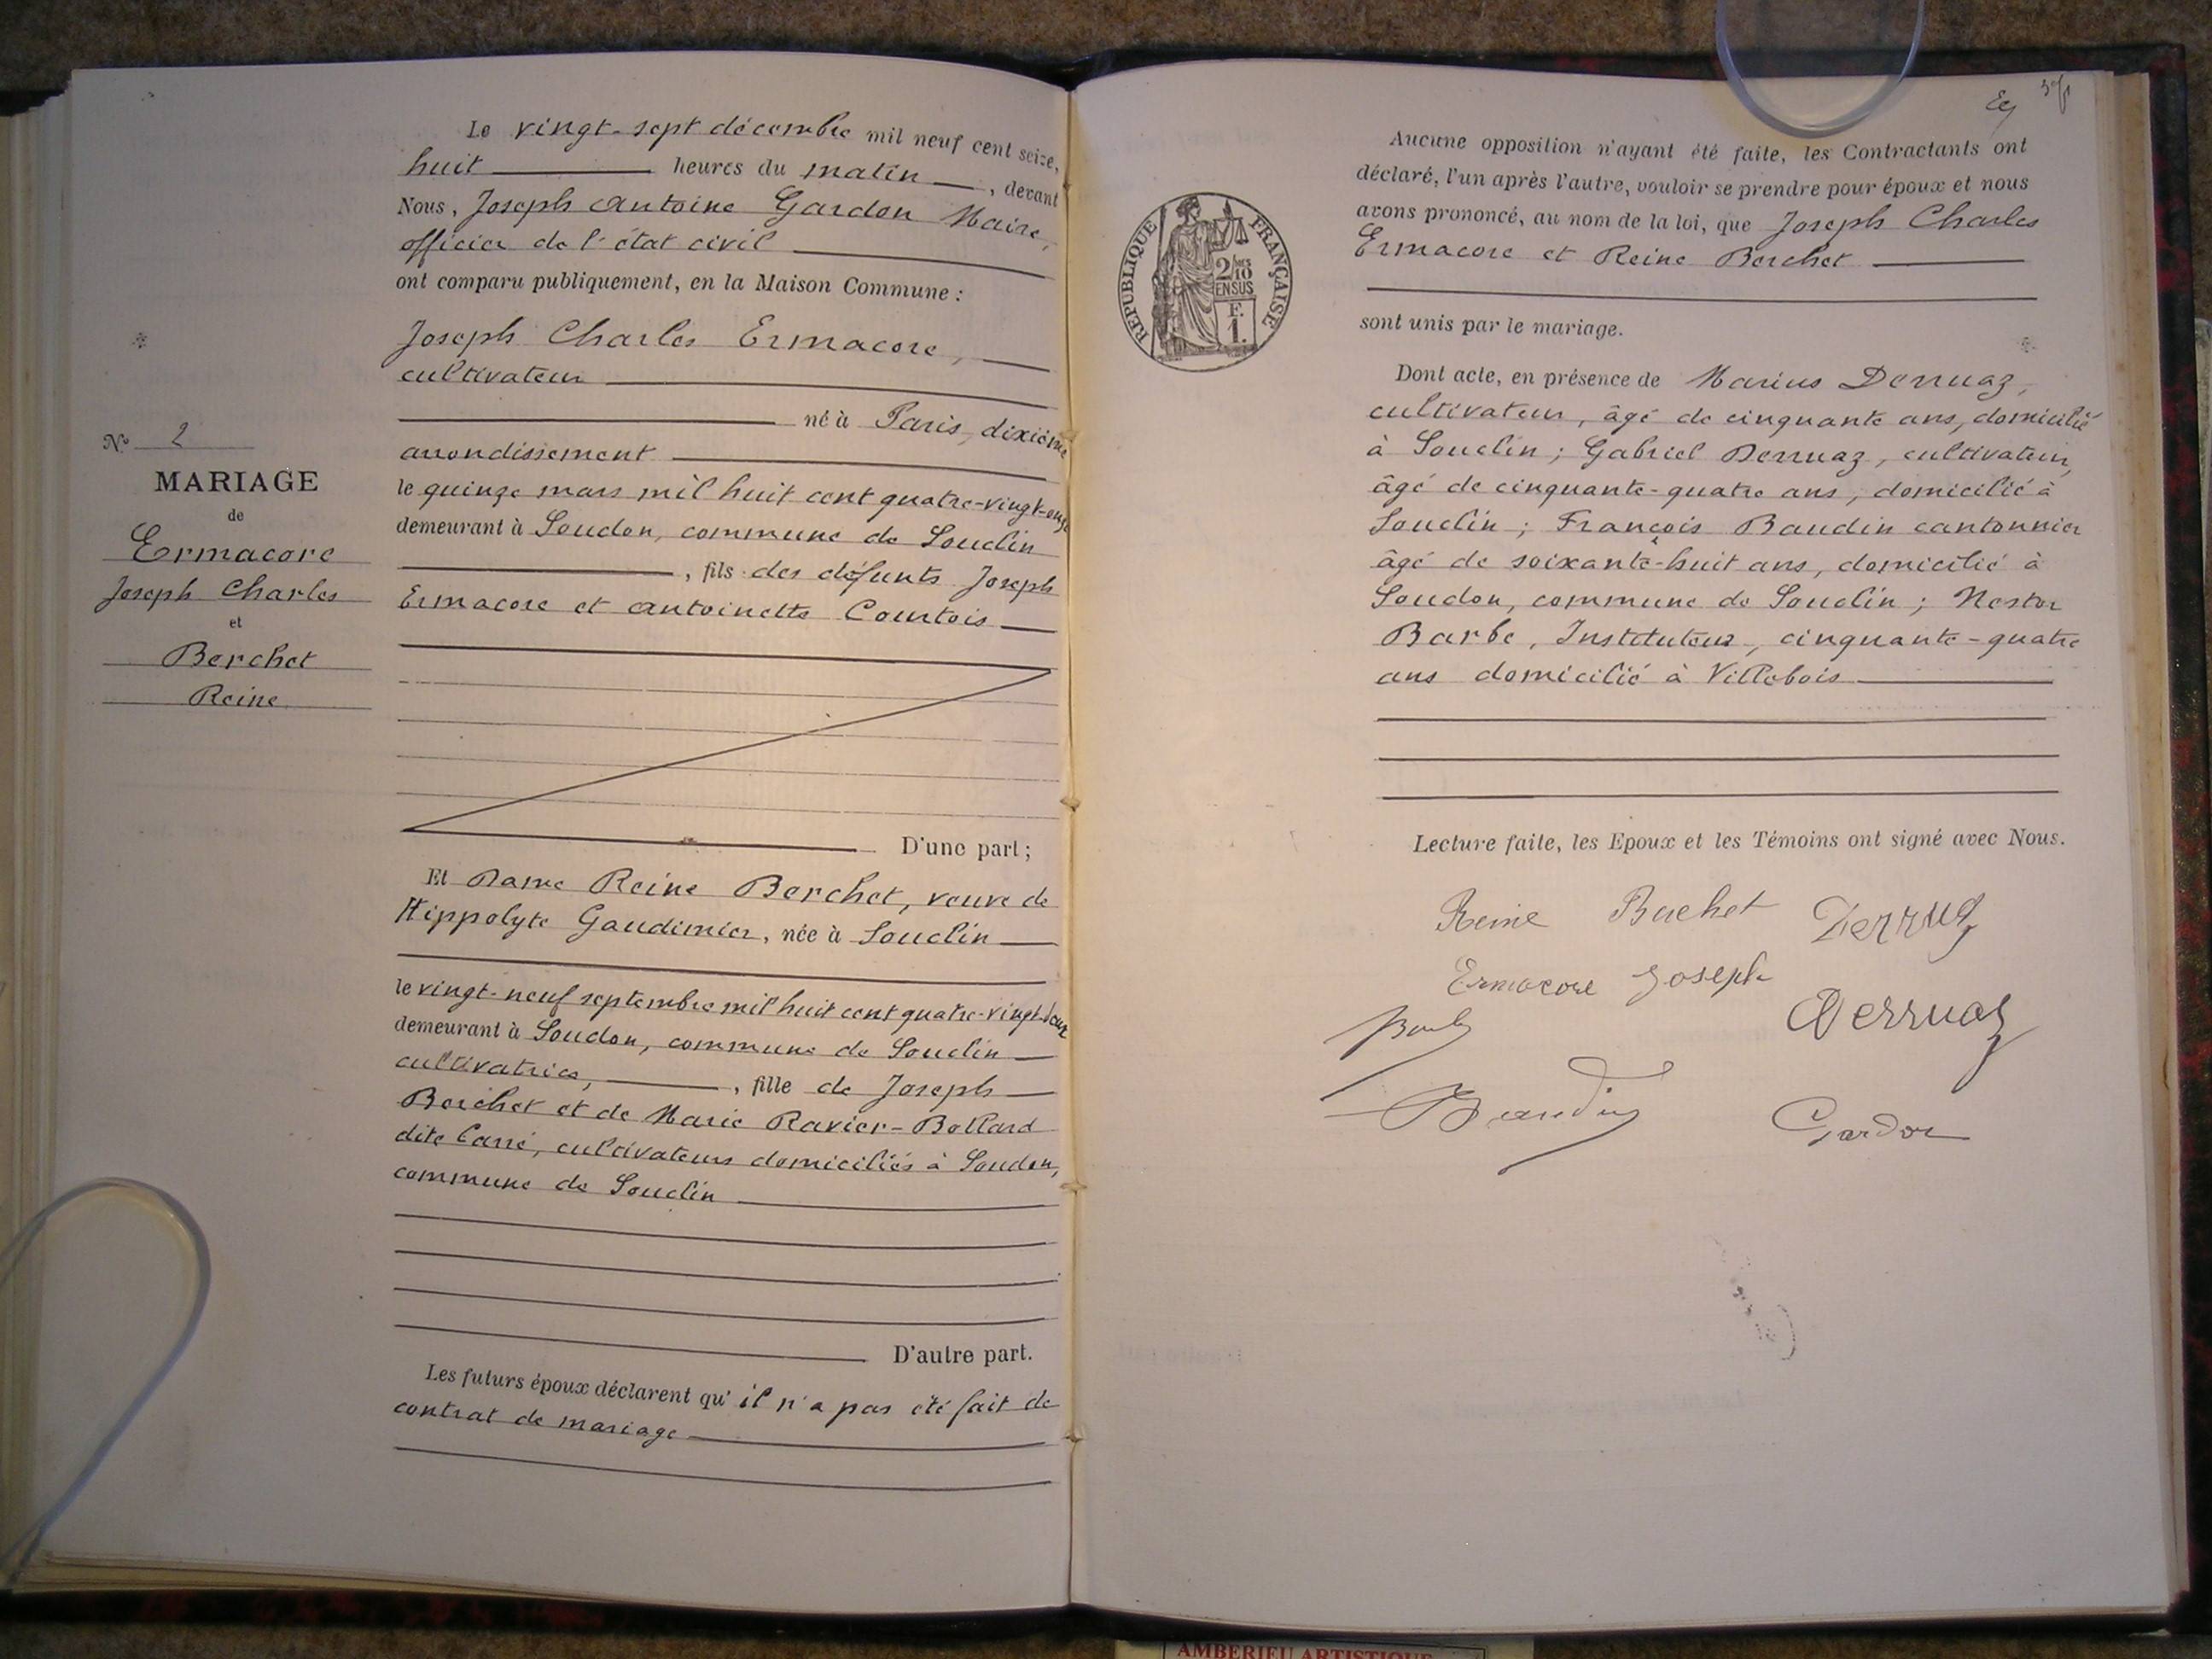 Le vingt-sept décembre mil neuf cent seize,
huit heures du matin, devant
Nous, Joseph Antoine Gardon Maire,
officier de l'état civil
ont comparu publiquement, en la Maison Commune :
Joseph Charles Ermacore,
cultivateur
né à Paris, dixième
arrondissement
le quinze mars mil huit cent quatre-vingt-onze
demeurant à Soudon, commune de Souclin
, fils des défunts Joseph
Ermacore et Antoinette Courtois
D'une part ;
Et Dame Reine Berchet, veuve de
Hippolyte Gaudimier, née à Souclin
le vingt-neuf septembre mil huit cent quatre-vingt-deux
demeurant à Soudon, commune de Souclin
cultivatrice, , fille de Joseph
Berchet et de Marie Ravier-Bollard
dite Carré, cultivateurs domiciliés à Soudon,
commune de Souclin
D'autre part.
Les futurs époux déclarent qu'il n'a pas été fait de
contrat de mariage
N° 2
MARIAGE
de
Ermacore
Joseph Charles
et
Berchet
Reine
Aucune opposition n'ayant été faite, les Contractants ont
déclaré, l'un après l'autre, vouloir se prendre pour époux et nous
avons prononcé, au nom de la loi, que Joseph Charles
Ermacore et Reine Berchet
sont unis par le mariage.
Dont acte, en présence de Marius Derruaz,
cultivateur, âgé de cinquante ans, domicilié
à Souclin ; Gabriel Derruaz, cultivateur,
âgé de cinquante-quatre ans, domicilié à
Souclin ; François Baudin cantonnier
âgé de soixante-huit ans, domicilié à
Soudon, commune de Souclin ; Nestor
Barbe, Instituteur, cinquante-quatre
ans domicilié à Villebois
Lecture faite, les Epoux et les Témoins ont signé avec Nous.
Reine Berchet Derruaz
Ermacore Joseph
Derruaz
Baudin
Gardon
RÉPUBLIQUE FRANÇAISE
2/10
EN SUS
F.
1.
AMBERIEU ARTISTIQUE